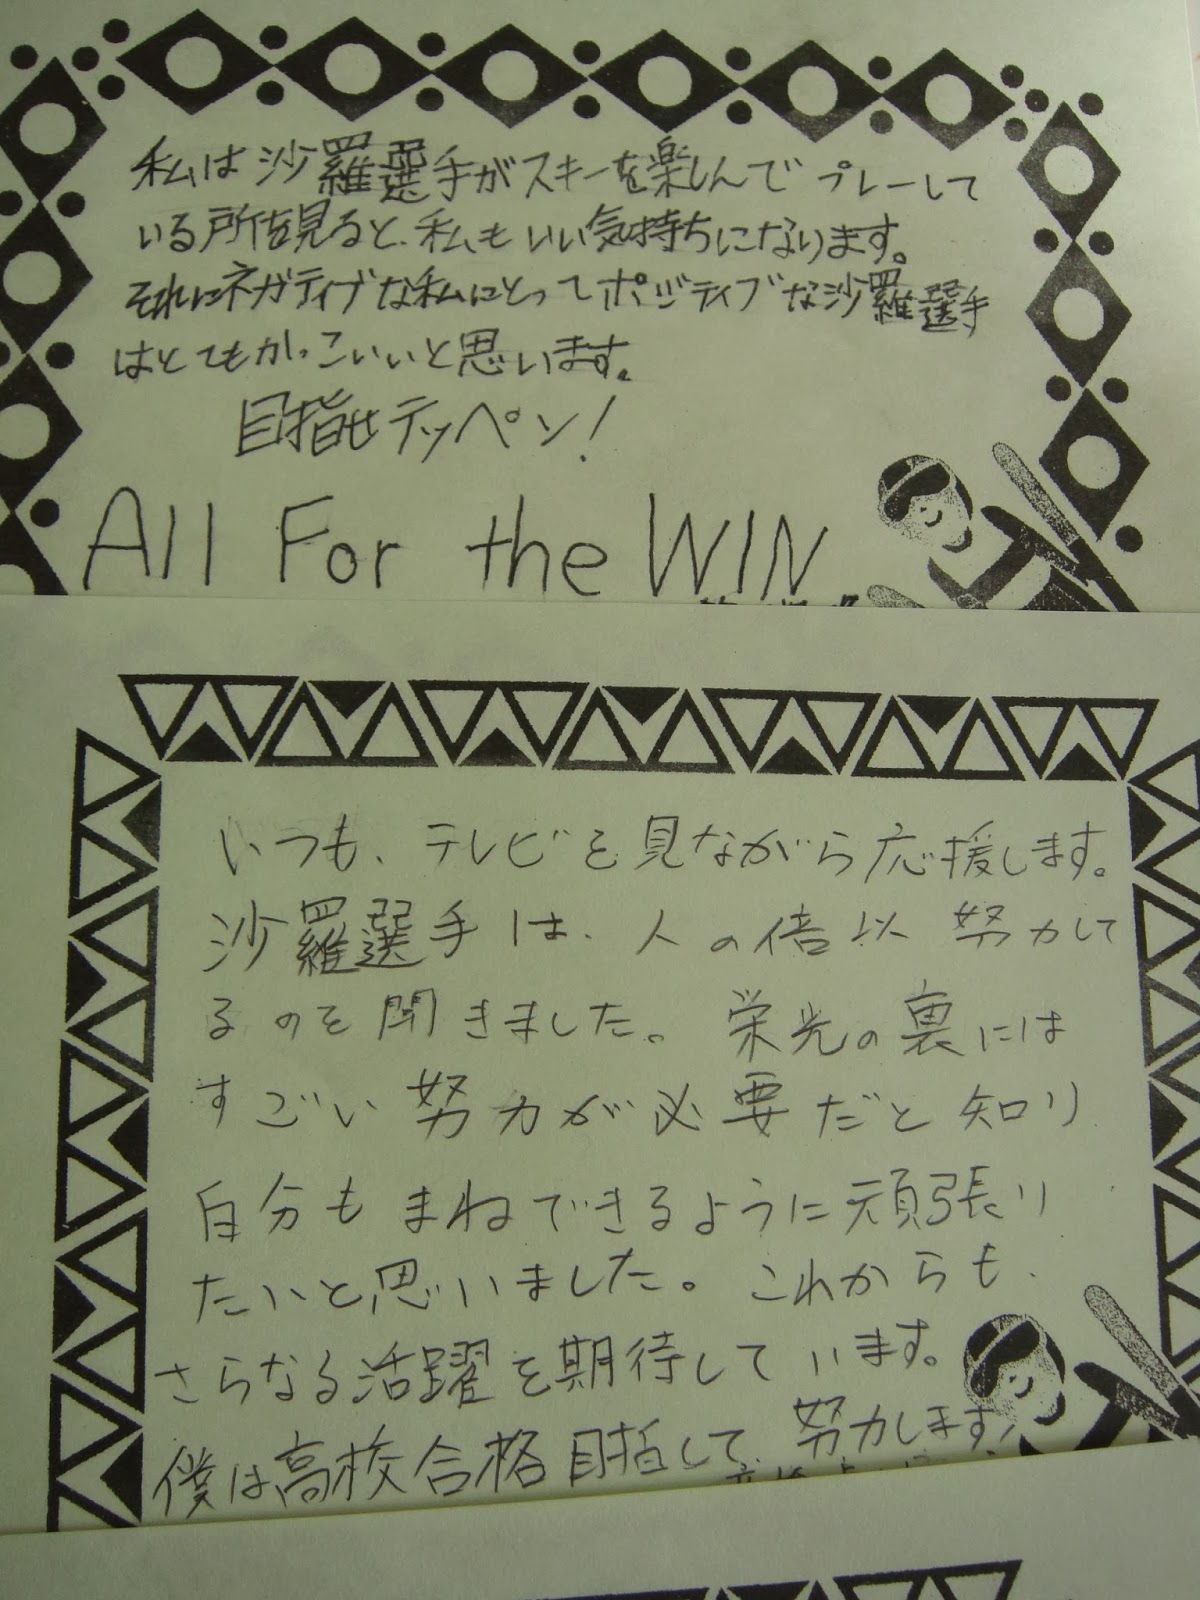 私は沙羅選手がスキーを楽しんでプレーして
いる所を見ると、私もいい気持ちになります。
それにネガティブな私にとってポジティブな沙羅選手
はとてもかっこいいと思います。
目指せテッペン!
All For the WIN
いつも、テレビを見ながら応援します。
沙羅選手は、人の倍以努力して
るのを聞きました。栄光の裏には
すごい努力が必要だと知り
自分もまねできるように頑張り
たいと思いました。これからも、
さらなる活躍を期待しています。
僕は高校合格目指して、努力します。